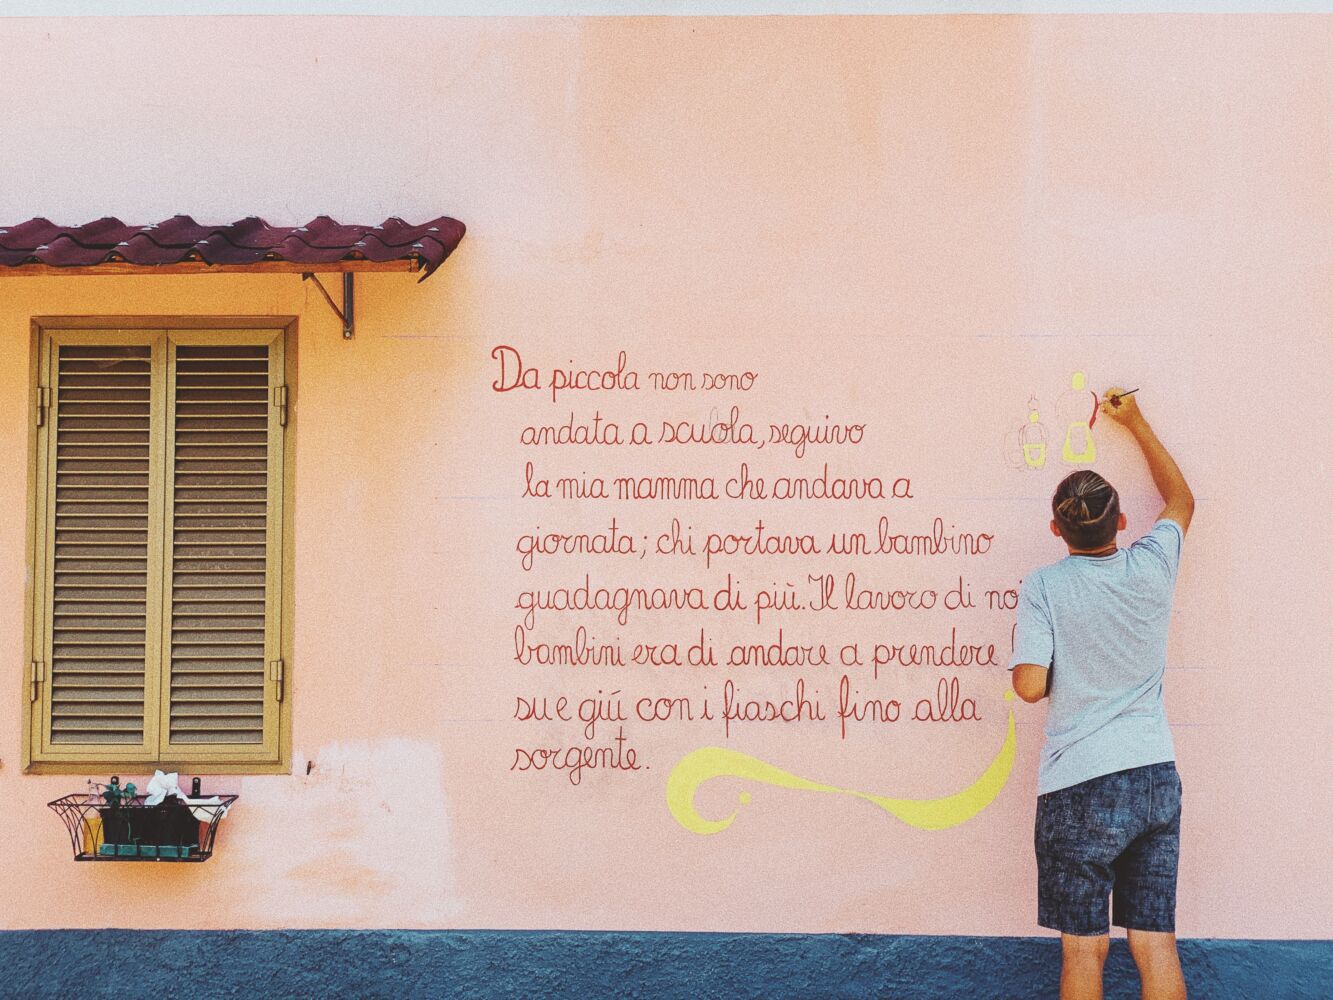 Da piccola non sono
andata a scuola, seguivo
la mia mamma che andava a
giornata; chi portava un bambino
guadagnava di più. Il lavoro di noi
bambini era di andare a prendere
su e giú con i fiaschi fino alla
sorgente.